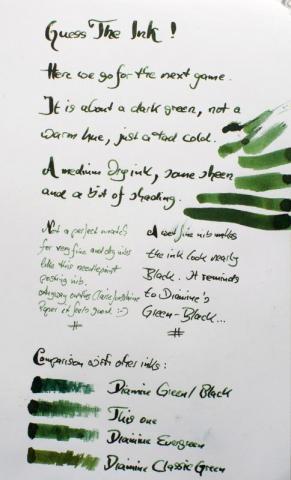 Guess The Ink !
Here we go for the next game.
It is about a dark green, not a
warm hue, just a tad cold.
A medium Dry ink, some sheen
and a bit of shading.
Not a perfect match
for very fine and dry nibs
like this needlepoint
posting nib.
Anyway on this Claire
Paper it feels good :-)
#
A wet fine nib makes
the ink look nearly
Black. It reminds
to Diamine's
Green-Black...
#
Comparison with other inks:
Diamine Green/Black
This one
Diamine Evergreen
Diamine Classic Green